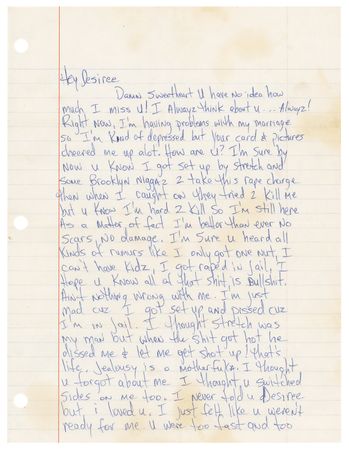 Hey Desiree
Damn Sweetheart U have no idea how
much I miss U! I Alwayz think about u... Alwayz!
Right now, I'm having problems with my marriage
so I'm kind of depressed but your card & pictures
cheered me up alot. How are U? I'm sure by
now u know I got set up by Stretch and
some Brooklyn Niggaz 2 take this rape charge
then when I caught on they tried 2 kill me
but u know I'm hard 2 kill so I'm still here
As a matter of fact I'm better than ever no
scars, No damage. I'm sure u heard all
kinds of rumors like I only got one nut, I
can't have kidz, I got raped in jail, I
hope u know all of that shit is Bullshit.
Ain't nothing wrong with me. I'm just
mad cuz I got set up and pissed cuz
I'm in jail. I thought Stretch was
my man but when the shit got hot he
dissed me & let me get shot up! that's
life. Jealousy is a motherfuka. I thought
u forgot about me. I thought u switched
sides on me too. I never told u Desiree
but, i loved u. I just felt like u weren't
ready for me u were too fast and too